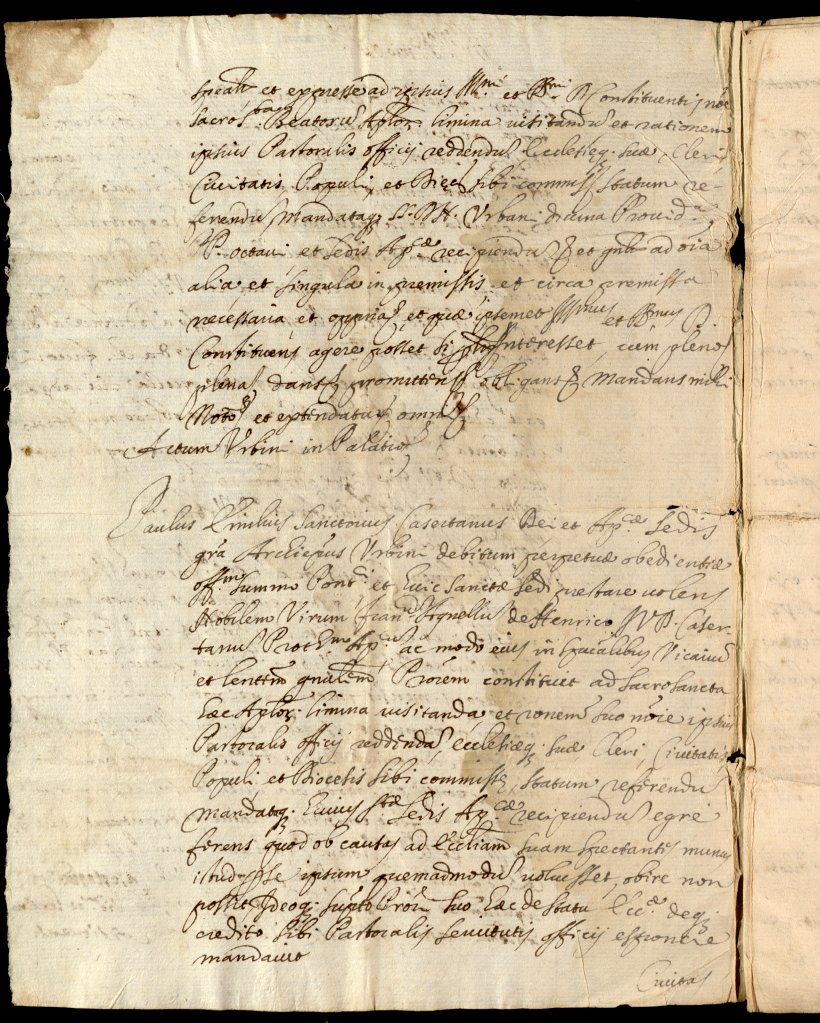 spealr et expresse ad ipsius Illmi et Rmi D Constituentis nōe
Sacros^tam Beatoru Aplor. limina uisitandu et rationem
ipsius Pastoralis officij reddendu Ecclesieq. suæ, Cleri
Ciuitatis Populi, et Diec sibi commiss Statum re-
ferendu Mandataq; S. D. N. Urbani diuina Prouid.^a
P. octaui et Sedis Ap.^cæ recipiendu & et gnlr ad oīa
alia et singula in premissis et circa premissa
necessaria et opprna et quæ ipsemet Illmus et Rmus D.
Constituens agere posset si interesset, cum pleno
plena dans promittens obligans & Mandans mihi
Noto et extendatur omni
Actum Urbini in Palatio
Paulus Emilius Sanctorius Casertanus Dei et Ap.^cæ Sedis
gra Archiepus Urbini debitum perpetuæ obedientiæ
off.^m Summo Pont.^i et Huic Sanctæ Sedi prestare uolens
Nobilem Virum Agnellu de Henrico JVD. Caser-
tanu Proth.^m Ap.^cu ac modo eius in spūalibus Vicariu
et lentem gnalem Prorem constituit ad Sacrosancta
hæc Aplor. limina uisitanda et ronem suo nōie ipsius
Pastoralis officij reddenda, ecclesiæq. suæ Cleri, Ciuitatis
Populi et Diocesis sibi commissæ, Statum referendu
Mandataq. Huius s^tæ Sedis Ap.^cæ recipiendu egre
ferens quod ob causas ad Eccliam suam spectantis munus
istud p se ipsum quemadmodu uoluisset, obire non
possit Ideoq. supto Prori suo hæc de Statu Ecc.^æ deq;
credito sibi Pastoralis seruitutis officij exponere
mandauit
Ciuitas